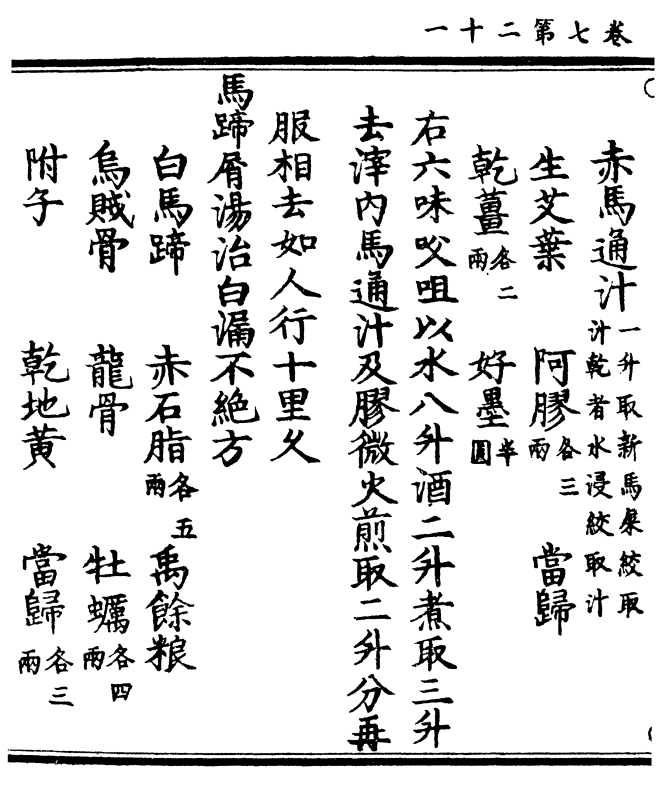 卷七第二十一
赤馬通汁一升取新馬屎絞取汁乾者水浸絞取汁
生艾葉 阿膠各三兩 當歸
乾薑各二兩 好墨半圓
右六味㕮咀以水八升酒二升煮取三升
去滓內馬通汁及膠微火煎取二升分再
服相去如人行十里久
馬蹄屑湯治白漏不絕方
白馬蹄 赤石脂各五兩 禹餘粮
烏賊骨 龍骨 牡蠣各四兩
附子 乾地黃 當歸各三兩